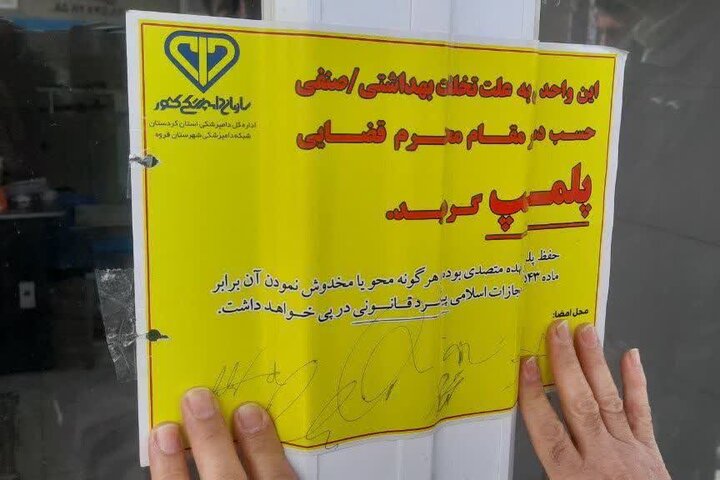 سازمان دامپزشکی کشور
اداره کل دامپزشکی استان کردستان
شبکه دامپزشکی شهرستان قروه
این واحد به علت تخلفات بهداشتی/صنفی
حسب دستور مقام محترم قضایی
پلمپ گردید.
حفظ پلمپ به عهده متصدی بوده هرگونه محو یا مخدوش نمودن آن برابر
ماده ۵۴۳ مجازات اسلامی پیگرد قانونی در پی خواهد داشت.
محل امضا: